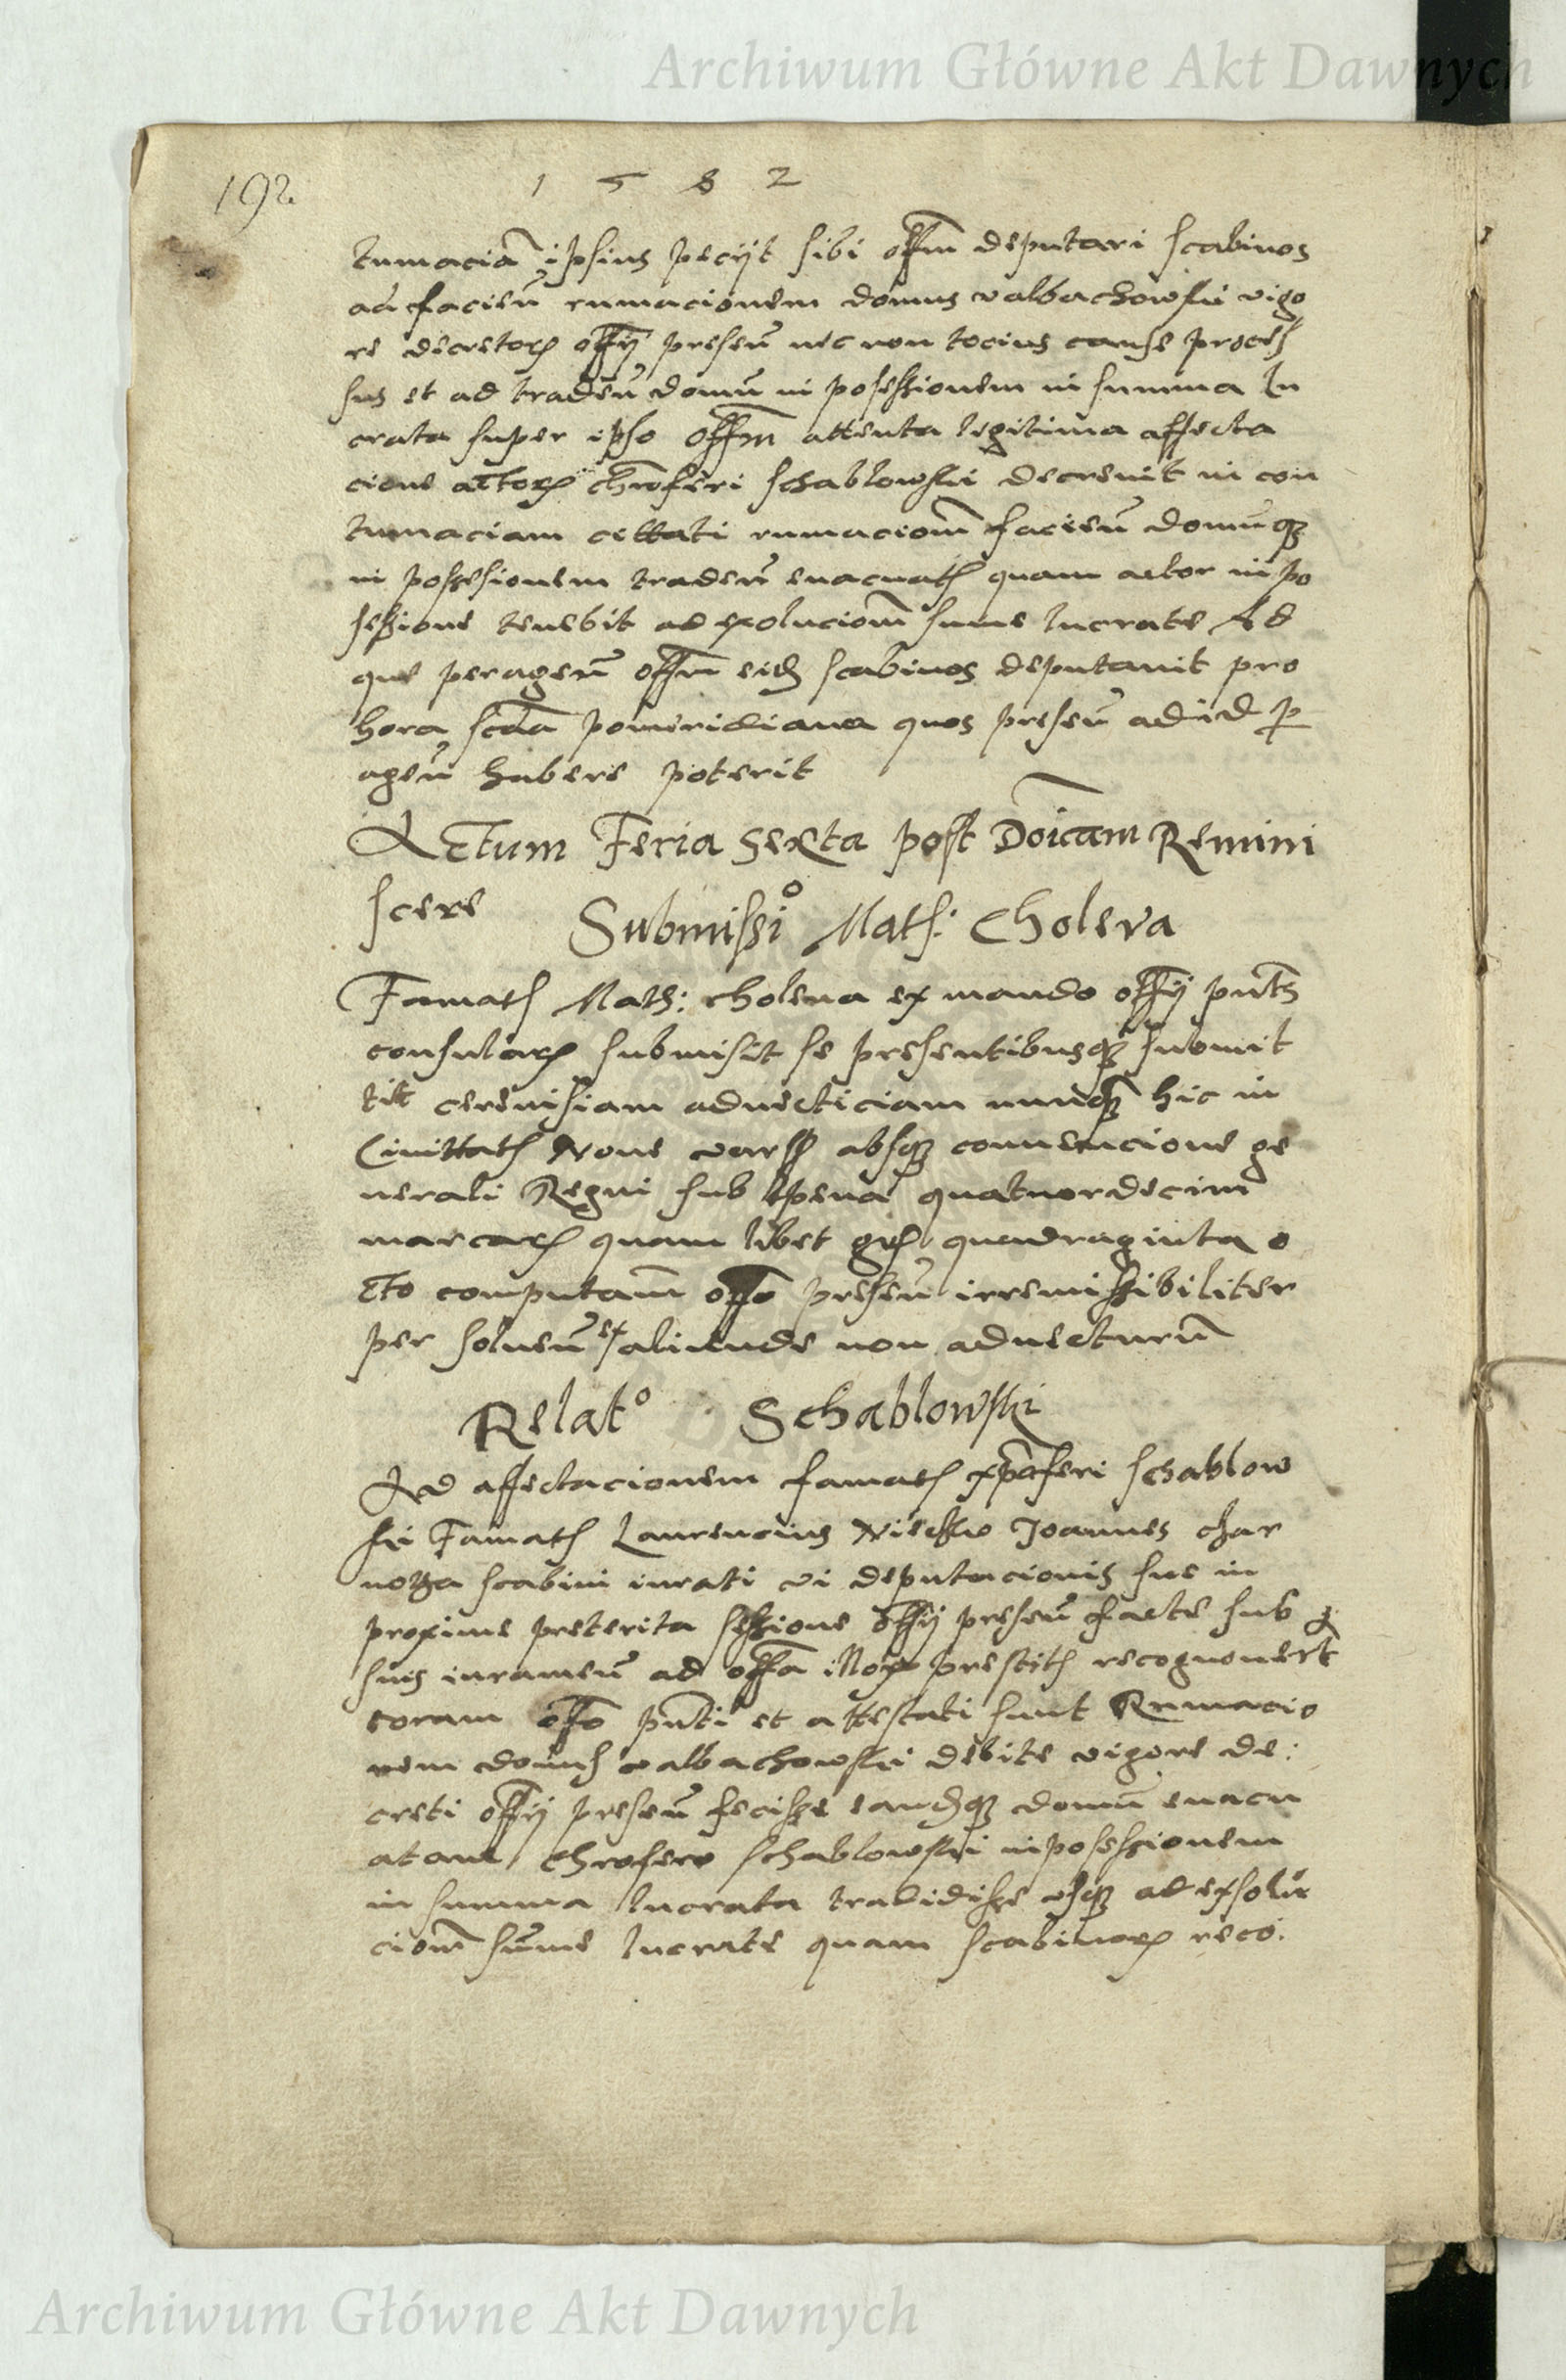 Archiwum Główne Akt Dawnych
192.
1 5 8 2
tumaciã ipsius pecijt sibi offm deputari scabinos
ad facieñ rumacionem domus valbachowski vigo
re decretoꝝ offij preseñ nec non tocius cause proces
sus et ad tradeñ domũ in possessionem in summa lu
crata super ipso offm attenta legitima affecta
cione actoꝝ chroferi schablowski decreuit in con
tumaciam cittati rumaciom̃ facieñ domũqꝫ
in possesionem tradeñ euacuatꝭ quam actor in po
sessione tenebit ad exoluciom̃ sume lucrate Ad
que perageñ offm eisdꝫ scabinos deputauit pro
hora scda pomeridiana quos preseñ ad id ꝑ
ageñ habere poterit
Actum Feria Sexta post Doicam Remini
scere
Submissio Math: Choleva
Famatꝭ Math: choleua ex mando offij pntis
consulaꝝ submisit se presentibusqꝫ submit
tit cereuisiam aduecticiam nunqꝫ hic in
Ciuittatꝭ Noue vars absqꝫ conuencione ge
nerali Regni sub pena quatuordecim
marcaꝝ quam libet grꝭ quadraginta o
cto computam̃ offo preseñ irremissibiliter
per solueñ ex aliunde non aducturũ
Relato Schablowski
Ad affectacionem famatꝭ xpoferi schablow
ski Famatꝭ Laurencius Joannes char
scabini iurati vi deputacionis sue in
proxime preterita sessione offij preseñ facte sub
suis iurameñ ad offa illoꝝ prestitꝭ recognouert
coram offo pnti et attestati sunt Rumacio
nem domus valbachowski debite vigore de:
creti offij preseñ fecisse eandꝫqꝫ domũ euacu
atam chrofero schablowski in posessionem
in summa lucrata tradidisse vsqꝫ ad exsolu
ciom̃ sum̃e lucrate quam scabinoꝝ reco:
Archiwum Główne Akt Dawnych